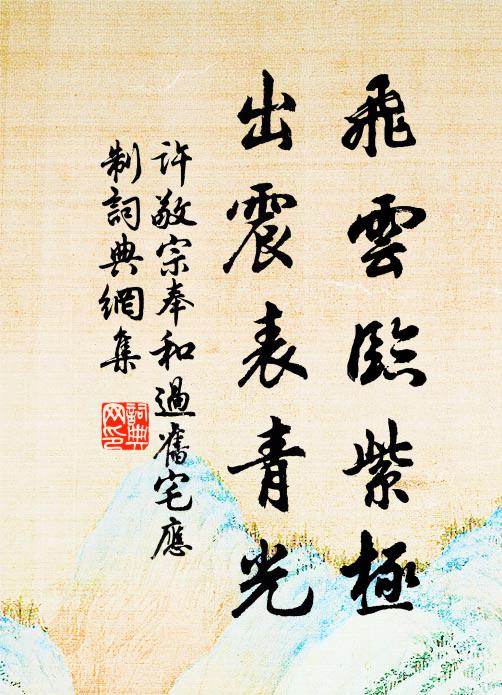 飛雲臨紫極
出震表青光
許敬宗奉和過舊宅應
制詞典網集
詞典
网印